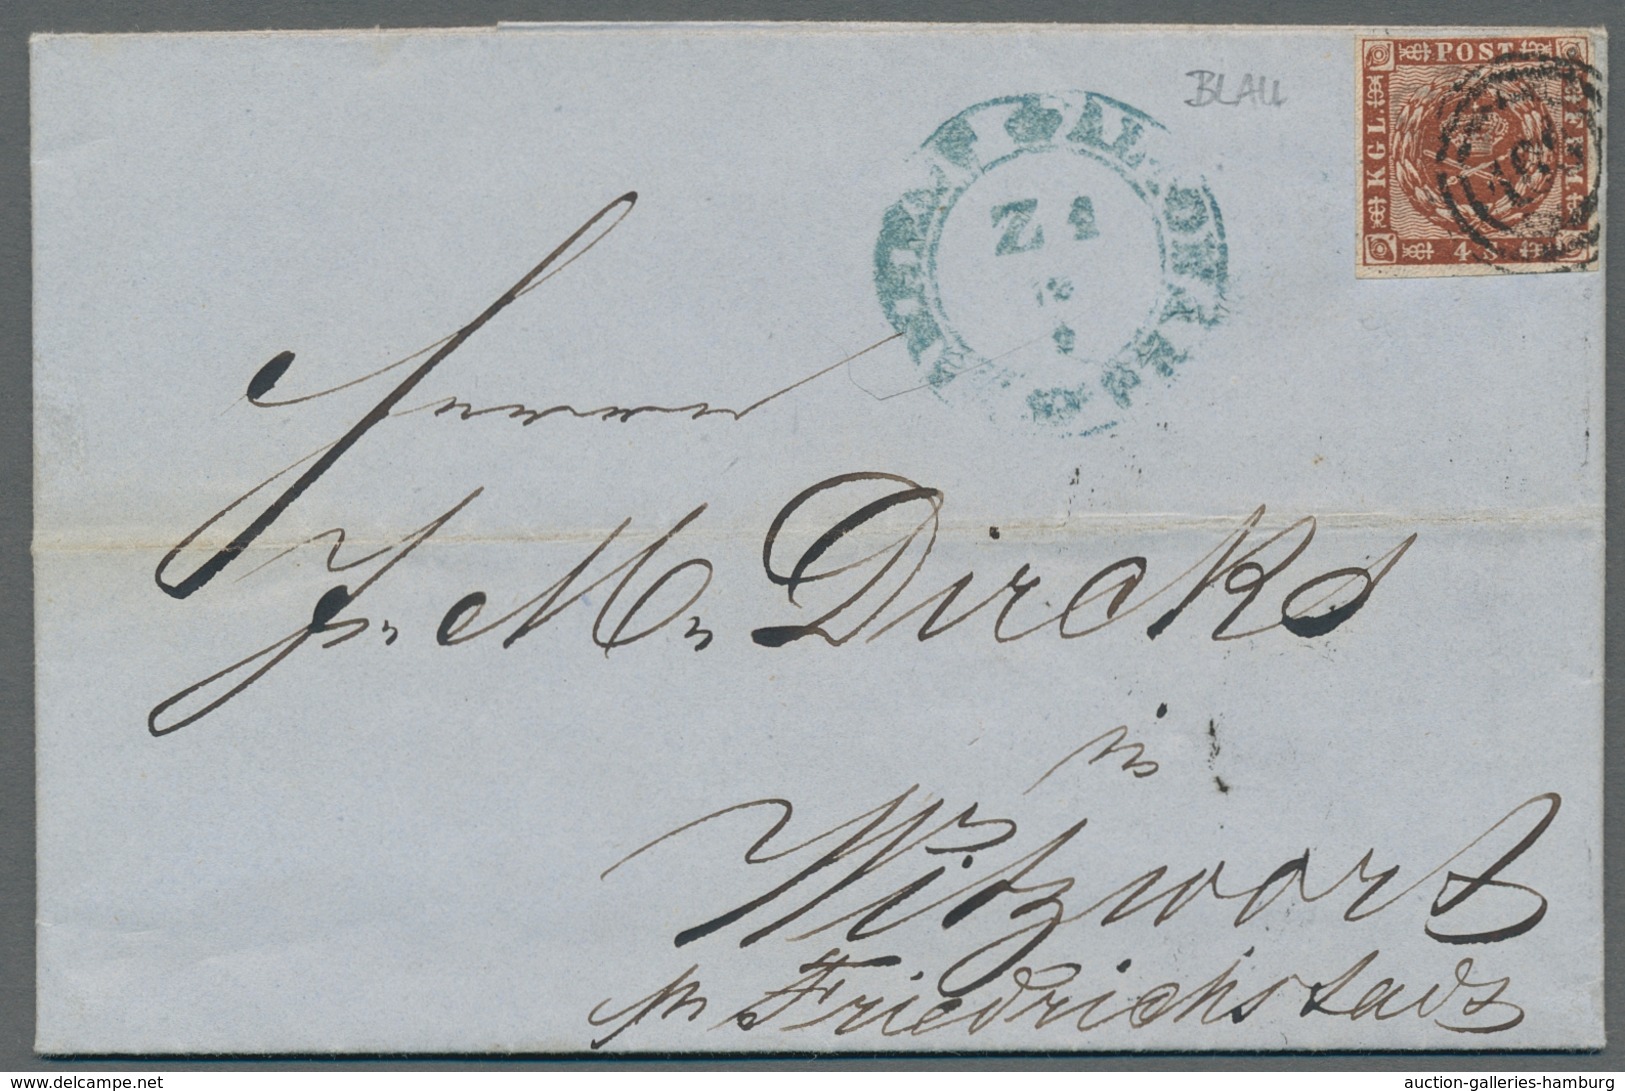 BLAU
POST
KGL
FRM
4 S
Z 1
Herrn
J. M. Dircks
in
Witzwort
pr Friedrichstadt
www.delcampe.net
auction-galleries-hamburg